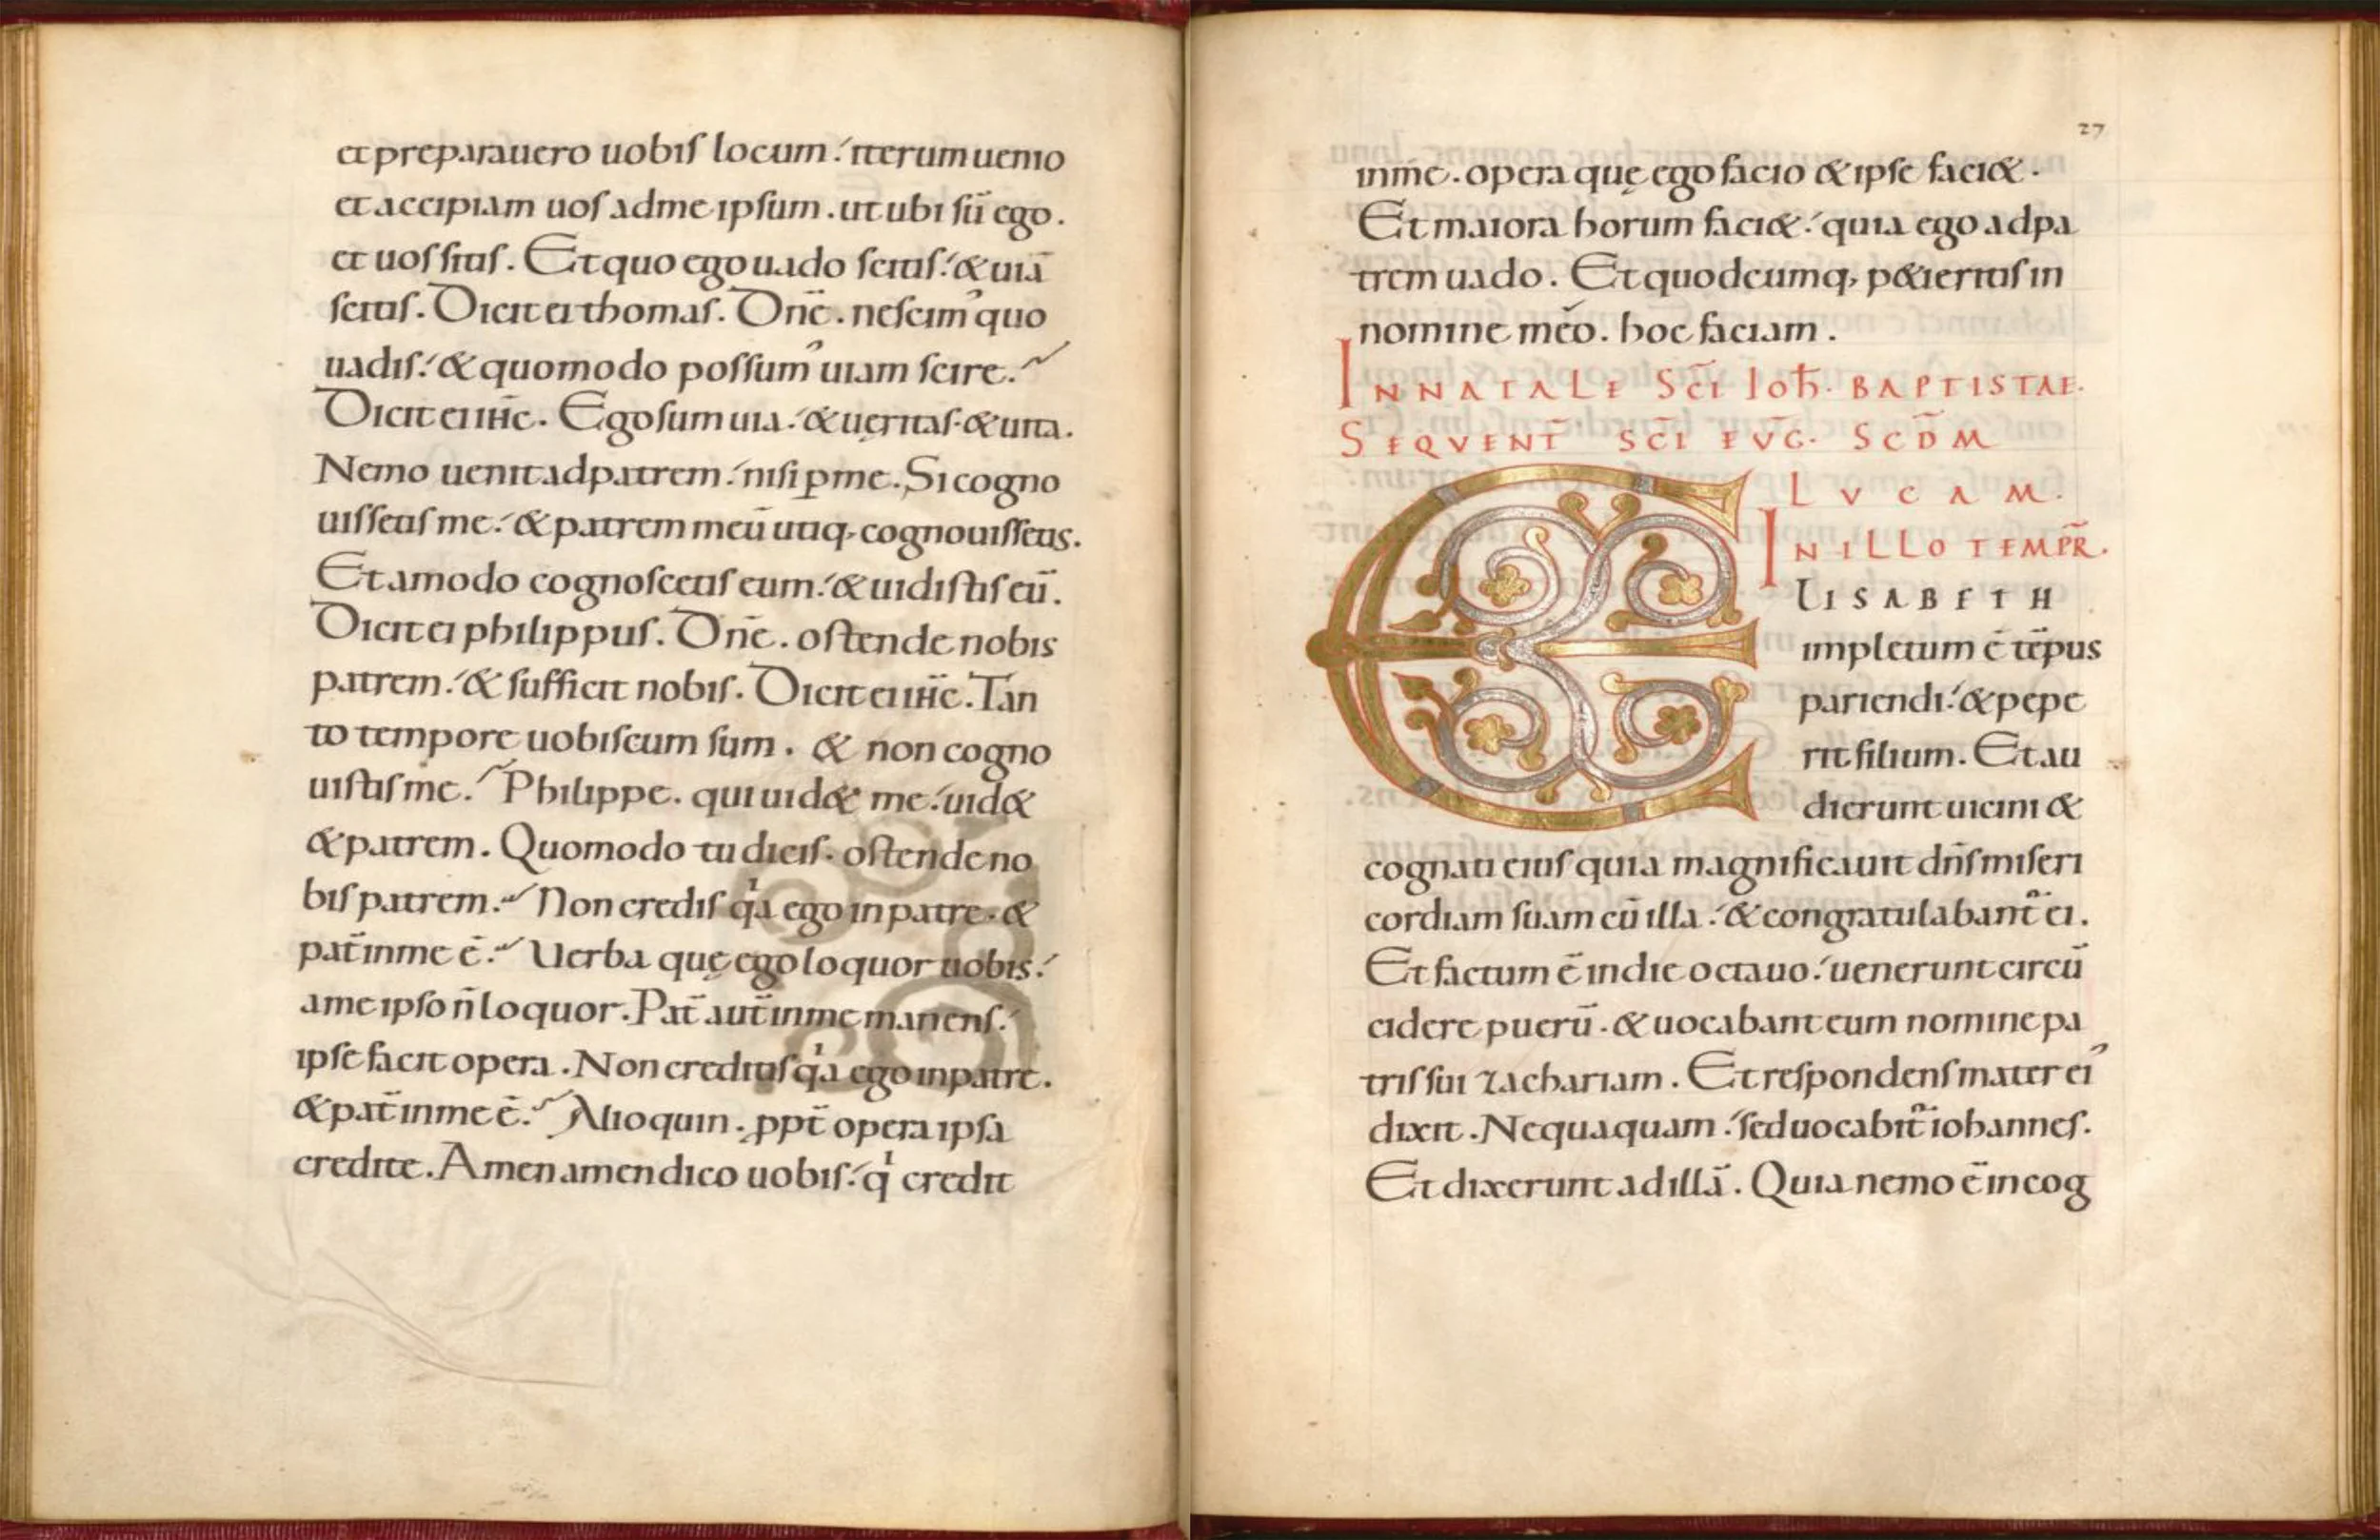 et preparauero uobis locum. iterum uenio
et accipiam uos ad me ipsum. ut ubi sū ego.
et uos sitis. Et quo ego uado scitis. & uiā
scitis. Dicit ei thomas. Dn̄e. nescim᾽ quo
uadis. & quomodo possum᾽ uiam scire.
Dicit ei ih̄c. Ego sum uia. & uęritas. & uita.
Nemo uenit ad patrem. nisi ꝑ me. Si cogno
uissetis me. & patrem meū utiq; cognouissetis.
Et amodo cognoscetis eum. & uidistis eū.
Dicit ei philippus. Dn̄e. ostende nobis
patrem. & sufficit nobis. Dicit ei ih̄c. Tan
to tempore uobiscum sum. & non cogno
uistis me. Philippe. qui uid& me. uid&
& patrem. Quomodo tu dicis. ostende no
bis patrem. Non credis qͥa ego in patre. &
pat̄ in me ē. Uerba quę ego loquor uobis.
a me ipso n̄ loquor. Pat̄ aut̄ in me manens.
ipse facit opera. Non creditis qͥa ego in patre.
& pat̄ in me ē. Alioquin. ꝓpt̄ opera ipsa
credite. Amen amen dico uobis. qͥ credit
27
in me. opera quę ego facio & ipse faci&.
Et maiora horum faci&. quia ego ad pa
trem uado. Et quodcumq; p&ieritis in
nomine meo. hoc faciam.
IN NATALE SC̄I IOH̄. BAPTISTAE.
SEQVENT̄ SC̄I EVG. SCD̄M
LVCAM.
IN ILLO TEMPR̄.
ELISABETH
impletum ē tēpus
pariendi. & pepe
rit filium. Et au
dierunt uicini &
cognati eius quia magnificauit dn̄s miseri
cordiam suam cū illa. & congratulabant̄ ei.
Et factum ē in die octauo. uenerunt circū
cidere puerū. & uocabant eum nomine pa
tris sui zachariam. Et respondens mater ei᾽
dixit. Nequaquam. sed uocabit̄ iohannes.
Et dixerunt ad illā. Quia nemo ē in cog